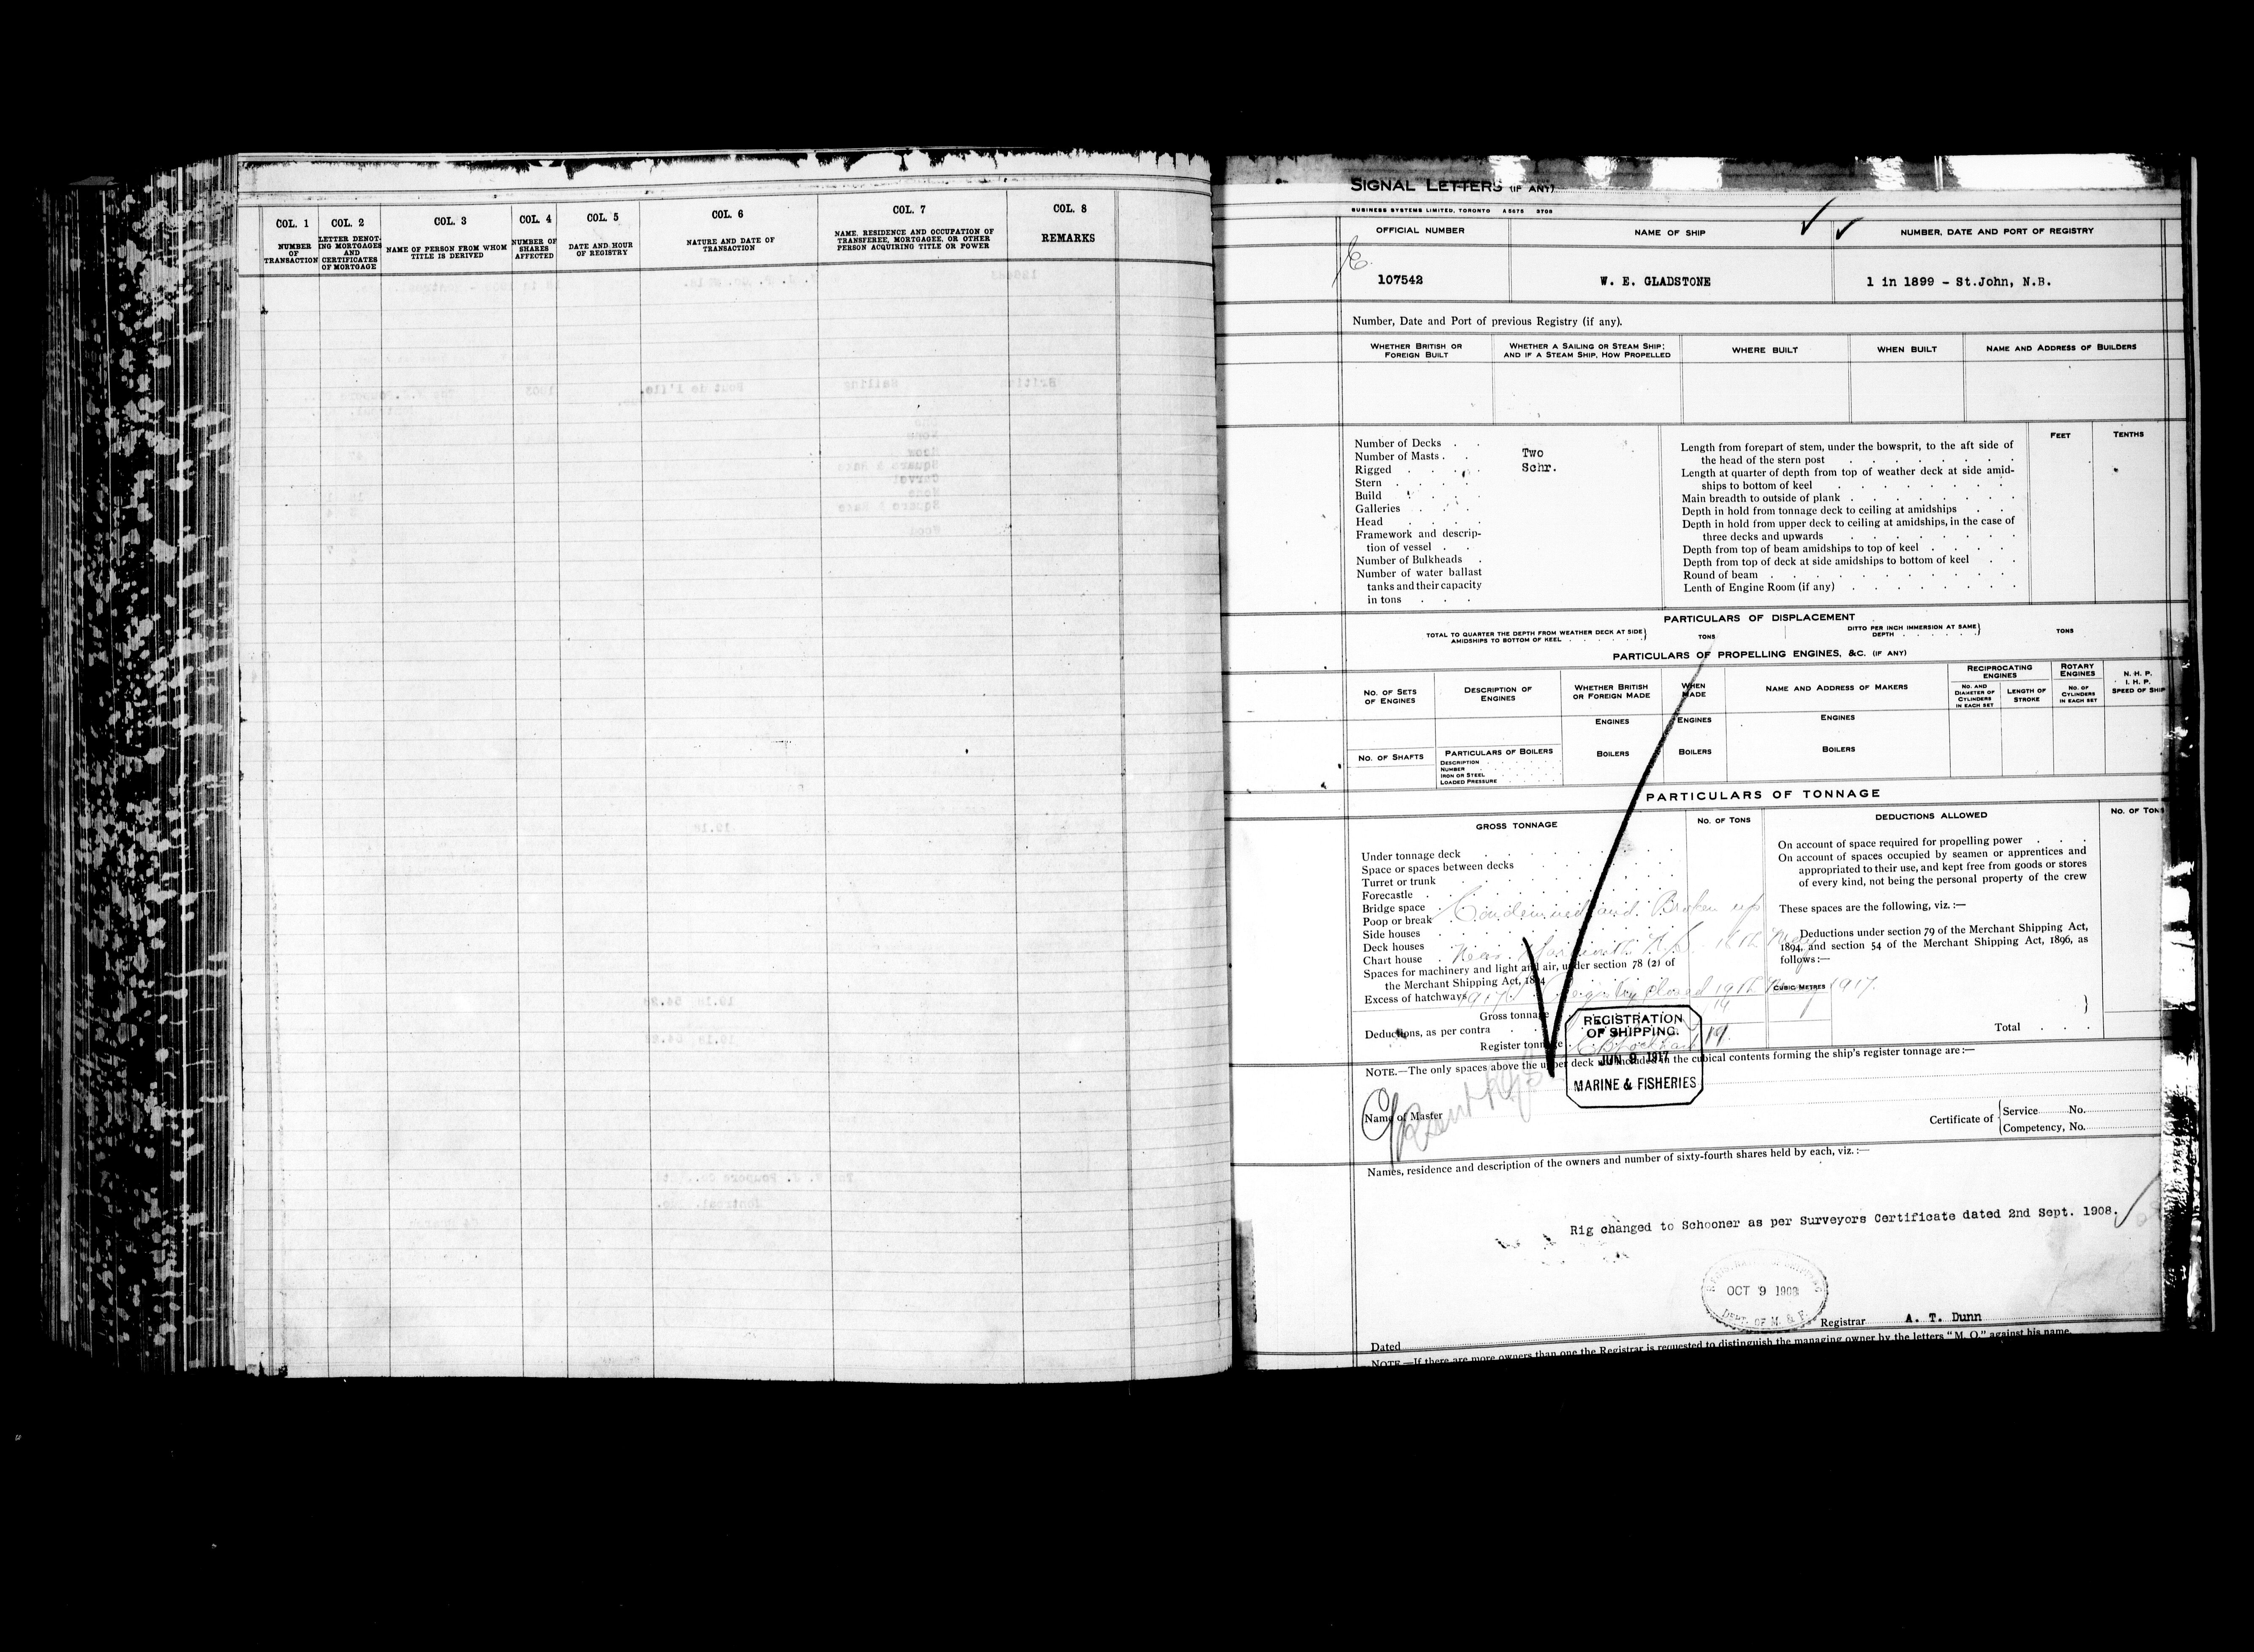 COL. 1
NUMBER
OF
TRANSACTION
COL. 2
LETTER DENOT-
ING MORTGAGES
AND
CERTIFICATES
OF MORTGAGE
COL. 3
NAME OF PERSON FROM WHOM
TITLE IS DERIVED
COL. 4
NUMBER OF
SHARES
AFFECTED
COL. 5
DATE AND HOUR
OF REGISTRY
COL. 6
NATURE AND DATE OF
TRANSACTION
COL. 7
NAME, RESIDENCE AND OCCUPATION OF
TRANSFEREE, MORTGAGEE, OR OTHER
PERSON ACQUIRING TITLE OR POWER
COL. 8
REMARKS
SIGNAL LETTERS (IF ANY)
BUSINESS SYSTEMS LIMITED, TORONTO
OFFICIAL NUMBER
NAME OF SHIP
NUMBER, DATE AND PORT OF REGISTRY
107542
W. E. GLADSTONE
1 in 1899 - St.John, N.B.
Number, Date and Port of previous Registry (if any).
WHETHER BRITISH OR
FOREIGN BUILT
WHETHER A SAILING OR STEAM SHIP;
AND IF A STEAM SHIP, HOW PROPELLED
WHERE BUILT
WHEN BUILT
NAME AND ADDRESS OF BUILDERS
Number of Decks . .
Number of Masts . . Two
Rigged . . . . Schr.
Stern . . . .
Build . . . .
Galleries . . .
Head . . . .
Framework and descrip-
tion of vessel . .
Number of Bulkheads .
Number of water ballast
tanks and their capacity
in tons . . .
FEET
TENTHS
Length from forepart of stem, under the bowsprit, to the aft side of
the head of the stern post
Length at quarter of depth from top of weather deck at side amid-
ships to bottom of keel
Main breadth to outside of plank
Depth in hold from tonnage deck to ceiling at amidships
Depth in hold from upper deck to ceiling at amidships, in the case of
three decks and upwards
Depth from top of beam amidships to top of keel
Depth from top of deck at side amidships to bottom of keel
Round of beam
Lenth of Engine Room (if any)
PARTICULARS OF DISPLACEMENT
TOTAL TO QUARTER THE DEPTH FROM WEATHER DECK AT SIDE
AMIDSHIPS TO BOTTOM OF KEEL
TONS
DITTO PER INCH IMMERSION AT SAME
DEPTH
TONS
PARTICULARS OF PROPELLING ENGINES, &C. (IF ANY)
NO. OF SETS
OF ENGINES
DESCRIPTION OF
ENGINES
WHETHER BRITISH
OR FOREIGN MADE
WHEN
MADE
NAME AND ADDRESS OF MAKERS
RECIPROCATING
ENGINES
NO. AND
DIAMETER OF
CYLINDERS
IN EACH SET
LENGTH OF
STROKE
ROTARY
ENGINES
NO. OF
CYLINDERS
IN EACH SET
N. H. P.
I. H. P.
SPEED OF SHIP
ENGINES
ENGINES
ENGINES
NO. OF SHAFTS
PARTICULARS OF BOILERS
DESCRIPTION
NUMBER
IRON OR STEEL
LOADED PRESSURE
BOILERS
BOILERS
BOILERS
PARTICULARS OF TONNAGE
GROSS TONNAGE
NO. OF TONS
DEDUCTIONS ALLOWED
NO. OF TONS
Under tonnage deck
Space or spaces between decks
Turret or trunk
Forecastle
Bridge space
Poop or break
Side houses
Deck houses
Chart house
Spaces for machinery and light and air, under section 78 (2) of
the Merchant Shipping Act, 1894
Excess of hatchways
Gross tonnage
Deductions, as per contra
Register tonnage
Condemned and Broken up
1917. Registry closed 19th May 1917.
On account of space required for propelling power
On account of spaces occupied by seamen or apprentices and
appropriated to their use, and kept free from goods or stores
of every kind, not being the personal property of the crew
These spaces are the following, viz. :—
Deductions under section 79 of the Merchant Shipping Act,
1894, and section 54 of the Merchant Shipping Act, 1896, as
follows:—
CUBIC METRES
Total
REGISTRATION
OF SHIPPING.
JUN 9 1917
MARINE & FISHERIES
NOTE.—The only spaces above the upper deck not included in the cubical contents forming the ship's register tonnage are :—
Name of Master
Certificate of
Service No.
Competency, No.
Names, residence and description of the owners and number of sixty-fourth shares held by each, viz. :—
Rig changed to Schooner as per Surveyors Certificate dated 2nd Sept. 1908.
OCT 9 1908
DEPT. OF M. & F.
Registrar A. T. Dunn
Dated
NOTE.—If there are more owners than one the Registrar is requested to distinguish the managing owner by the letters "M. O." against his name.